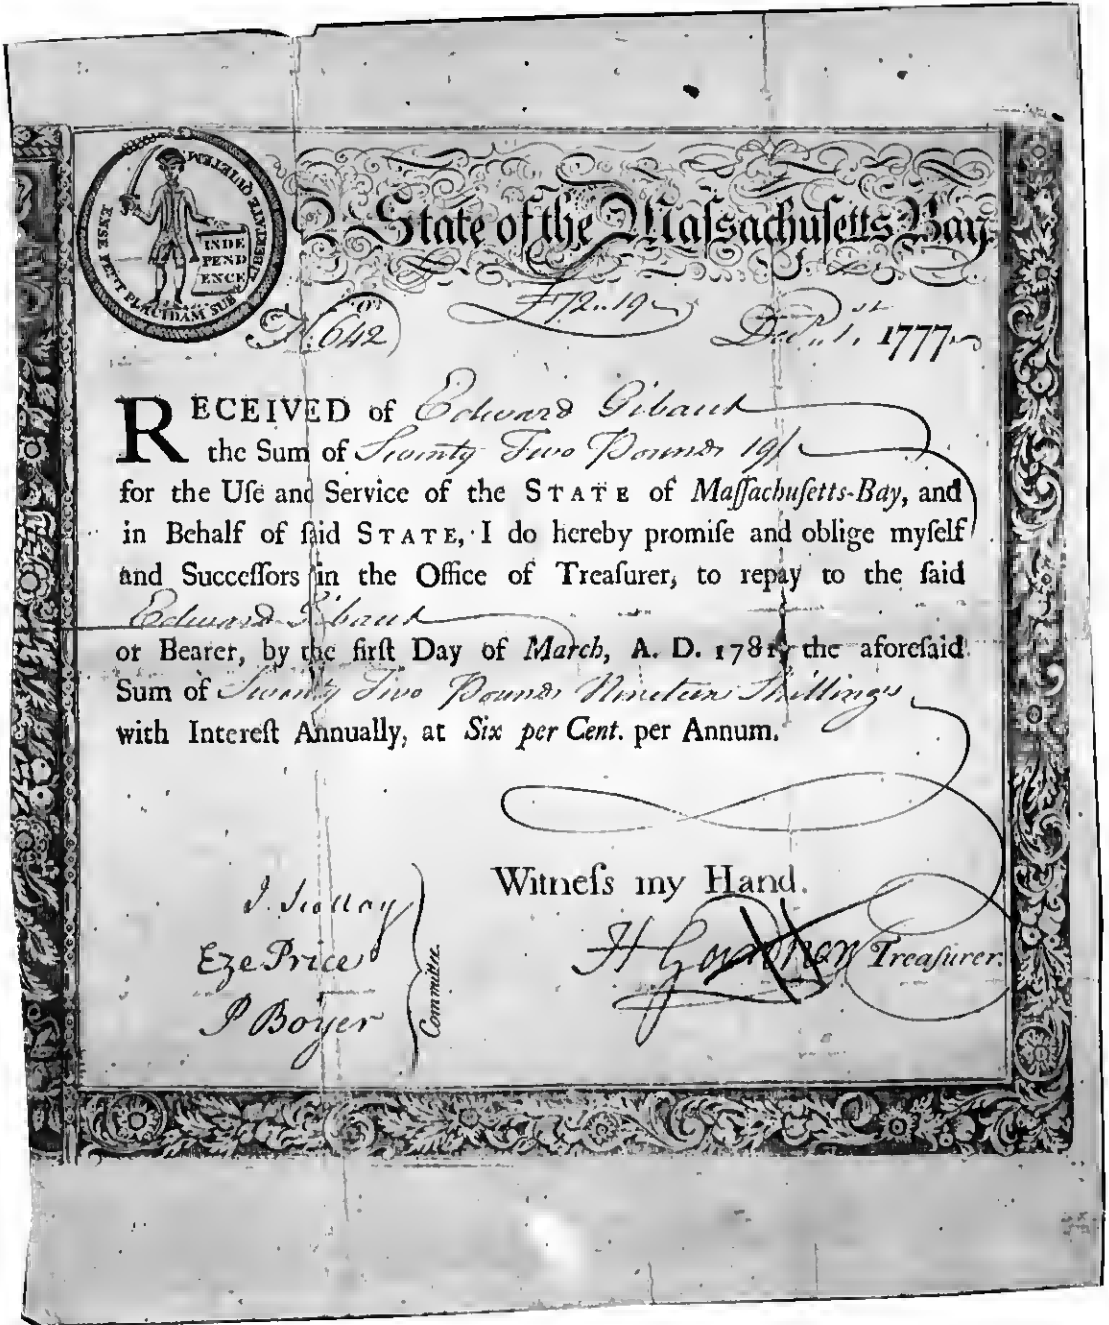 ENSE PETIT PLACIDAM SUB LIBERTATE QUIETEM
INDE
PEND
ENCE
State of the Maſsachuſetts Bay
N. 642
£72..19
Dec.r 1st. 1777
RECEIVED of Edward Gibaud
the Sum of Seventy Two Pounds 19/
for the Uſe and Service of the STATE of Maſſachuſetts-Bay, and
in Behalf of ſaid STATE, I do hereby promiſe and oblige myſelf
and Succeſſors in the Office of Treaſurer, to repay to the ſaid
Edward Gibaud
or Bearer, by the firſt Day of March, A. D. 1781, the aforeſaid
Sum of Seventy Two Pounds Nineteen Shillings
with Intereſt Annually, at Six per Cent. per Annum.
Witneſs my Hand.
J. Scollay
Eze Price
P Boyer
Committee.
H Gardner Treaſurer.